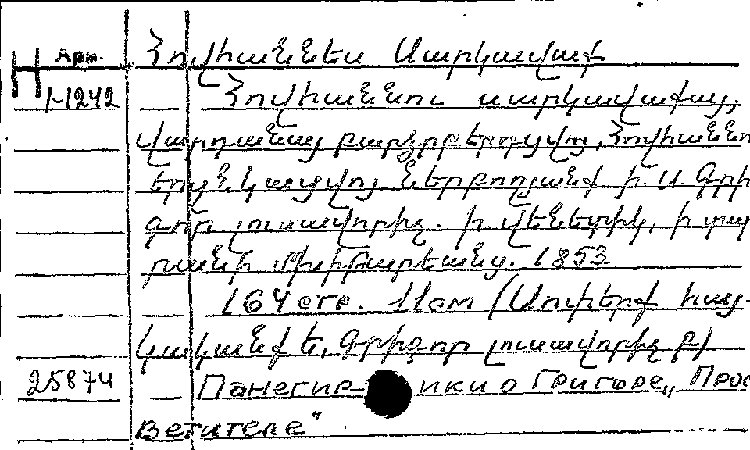 Арм. Հովհաննես Սարկավագ
H
1-1242 Յովհաննու սարկաւագայ,
Վարդանայ բարձրբերդցւոյ, Յովհաննո
երզնկացւոյ ներբողեանք ի Ս Գրի
գոր լուսաւորիչ. ի Վենետիկ, ի տպ
րանի Մխիթարեանց. 1853
164 стр. 11см (Սոփերք հայ-
կականք Ե, Գրիգոր լուսաւորիչ բ)
25874 Панегирики о Григоре „Прос
ветителе"